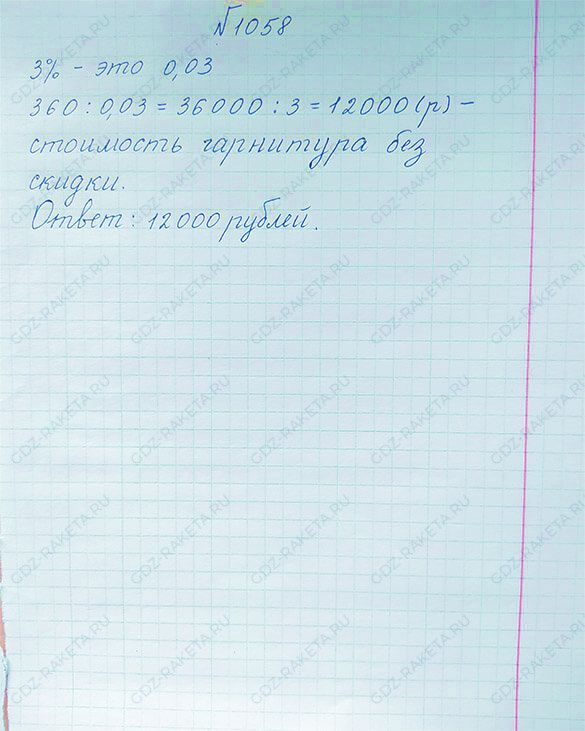 №1058
3% - это 0,03
360 : 0,03 = 36000 : 3 = 12000 (р) -
стоимость гарнитура без
скидки.
Ответ: 12000 рублей.
GDZ-RAKETA.RU